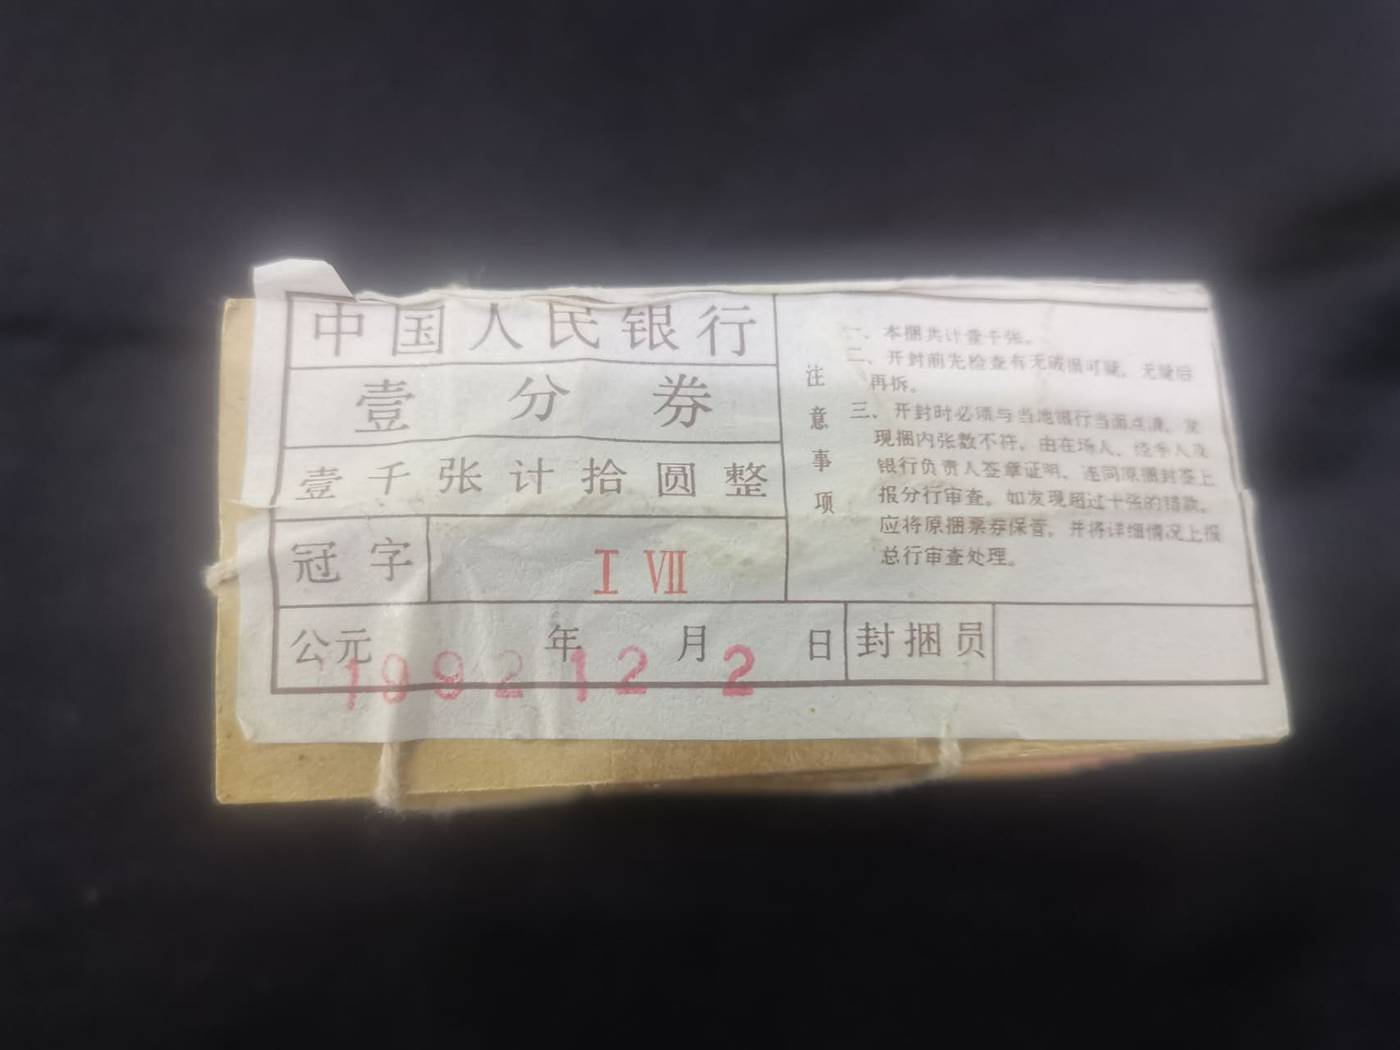 中国人民银行
壹分券
壹千张计拾圆整
冠字 I VII
公元 1992 年 12 月 2 日 封捆员
注意事项
一、本捆共计壹千张。
二、开封前先检查有无破损可疑，无疑后
再拆。
三、开封时必须与当地银行当面点清，发
现捆内张数不符，由在场人、经手人及
银行负责人签章证明，连同原捆封签上
报分行审查。如发现超过十张的错款，
应将原捆票券保管，并将详细情况上报
总行审查处理。